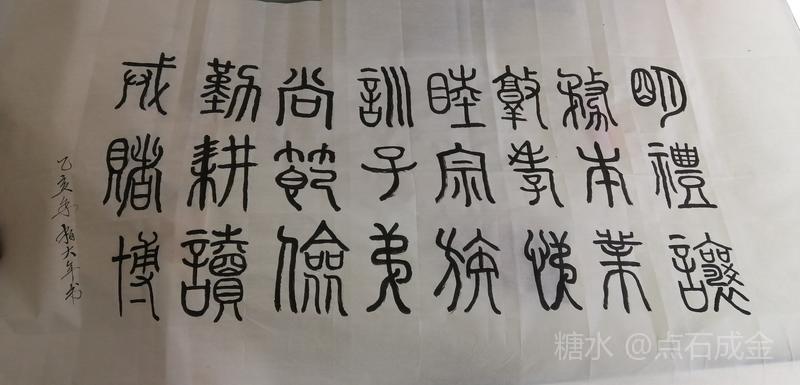 明禮讓
務本業
敦孝悌
睦宗族
訓子弟
尚節儉
勤耕讀
戒賭博
乙亥年 大年书
糖水 @点石成金